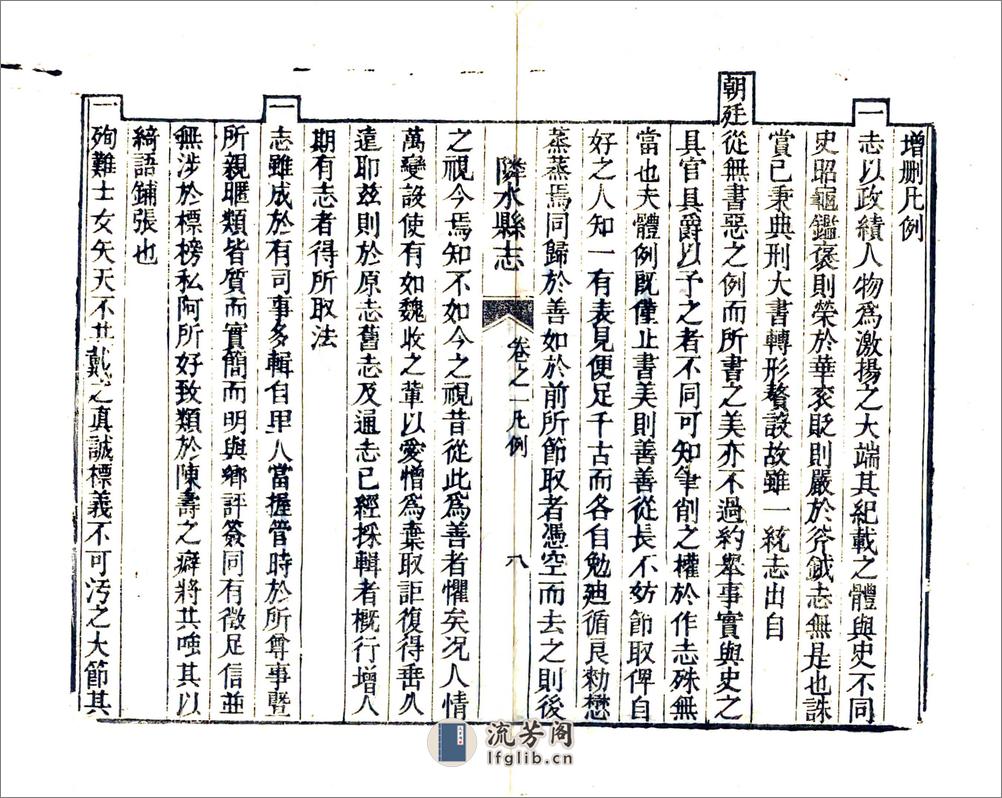 增删凡例
一志以政績人物爲激揚之大端其紀載之體與史不同
史昭龜鑑褒則榮於華衮貶則嚴於斧鉞志無是也誅
賞已秉典刑大書轉形贅設故雖一統志出自
朝廷從無書惡之例而所書之美亦不過約舉事實與史之
具官具爵以予之者不同可知筆削之權於作志殊無
當也夫體例既僅止書美則善善從長不妨節取俾自
好之人知一有表見便足千古而各自勉廸循良勑懋
蒸蒸焉同歸於善如於前所節取者憑空而去之則後
隣水縣志
卷之一凡例
八
之視今焉知不如今之視昔從此爲善者懼矣况人情
萬變設使有如魏收之軰以愛憎爲棄取詎復得垂久
遠耶兹則於原志舊志及通志已經採輯者概行增入
期有志者得所取法
一志雖成於有司事多輯自里人當握管時於所尊事暨
所親暱類皆質而實簡而明與鄉評簽同有徵足信並
無涉於標榜私阿所好致類於陳壽之癖將共嗤其以
綺語鋪張也
一殉難士女矢天不共戴之真誠標義不可汚之大節其
流芳阁
lfglib.cn